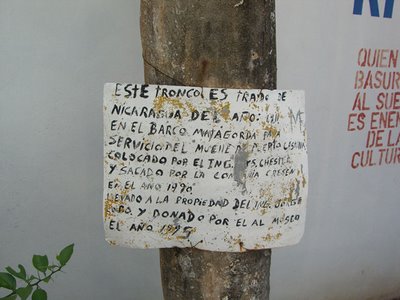 ESTE TRONCO ES TRAIDO DE
NICARAGUA DEL AÑO: 19
EN EL BARCO MATAGORDA PARA
SERVICIO DEL MUELLE DE
COLOCADO POR EL ING. CHESTER
Y SACADO POR LA
EN EL AÑO 1970
LLEVADO A LA PROPIEDAD DEL ING. JORGE
Y DONADO POR EL AL MUSEO
EL AÑO 1995
QUIEN
BASUR
AL SUE
ES ENEM
DE LA
CULTUR